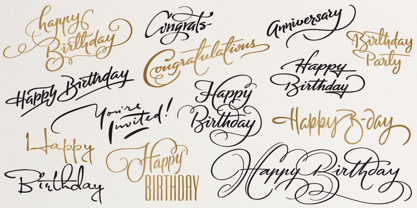 happy
Birthday
Congrats
Anniversary
Congratulations
Birthday
Party
Happy Birthday
Happy
Birthday
You're
Invited!
Happy
Birthday
Happy B-day
Happy
Birthday
Happy
BIRTHDAY
Happy Birthday